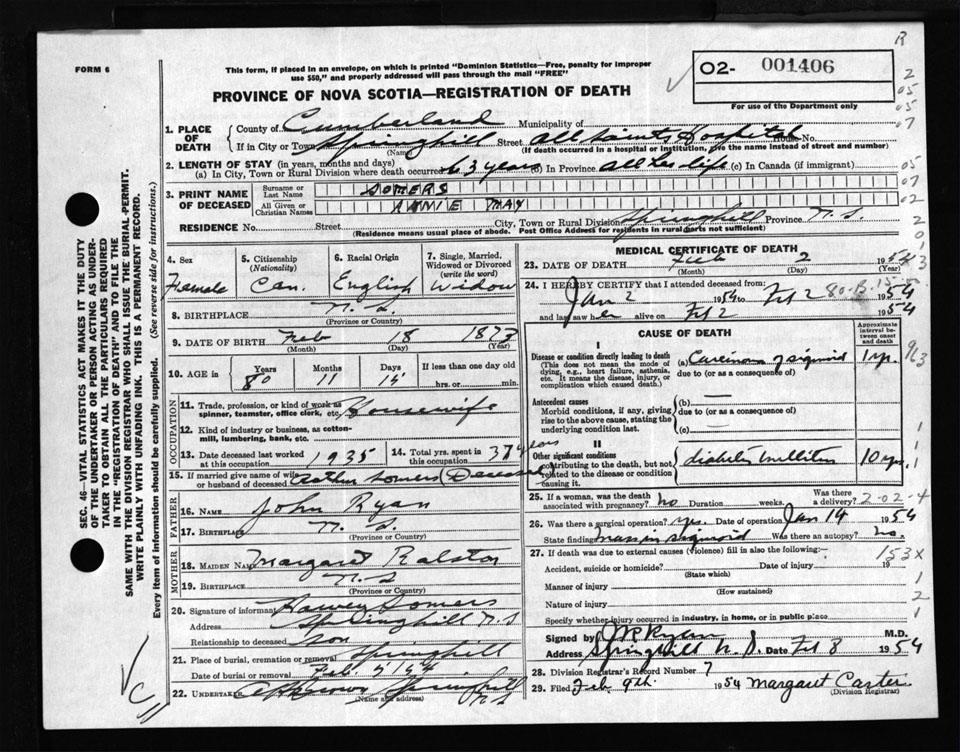 R
FORM 6
This form, if placed in an envelope, on which is printed "Dominion Statistics—Free, penalty for improper
use $50," and properly addressed will pass through the mail "FREE"
O2- 001406
For use of the Department only
PROVINCE OF NOVA SCOTIA—REGISTRATION OF DEATH
1. PLACE OF DEATH
County of Cumberland Municipality of
If in City or Town Springhill Street All Saints Hospital House No.
(Name) (If death occurred in a hospital or institution, give the name instead of street and number)
2. LENGTH OF STAY (in years, months and days)
(a) In City, Town or Rural Division where death occurred 63 years (b) In Province all her life (c) In Canada (if immigrant)
3. PRINT NAME OF DECEASED
Surname or Last Name SOMERS
All Given or Christian Names ANNIE MAY
RESIDENCE No. Street City, Town or Rural Division Springhill Province N.S.
(Residence means usual place of abode. Post Office Address for residents in rural parts not sufficient)
4. Sex Female
5. Citizenship (Nationality) Can.
6. Racial Origin English
7. Single, Married, Widowed or Divorced (write the word) Widow
8. BIRTHPLACE N.S.
(Province or Country)
9. DATE OF BIRTH Feb 18 1873
(Month) (Day) (Year)
10. AGE Years 80 Months 11 Days 15 If less than one day old hrs. or min.
OCCUPATION
11. Trade, profession, or kind of work as spinner, teamster, office clerk, etc. Housewife
12. Kind of industry or business, as cotton-mill, lumbering, bank, etc.
13. Date deceased last worked at this occupation 1935
14. Total yrs. spent in this occupation 37 years
15. If married give name of wife or husband of deceased Arthur Somers (Deceased)
FATHER
16. Name John Ryan
17. Birthplace N.S.
(Province or Country)
MOTHER
18. MAIDEN NAME Margaret Ralston
19. BIRTHPLACE N.S
(Province or Country)
20. Signature of informant Harvey Somers
Address Springhill N.S
Relationship to deceased son
21. Place of burial, cremation or removal Springhill
Date of burial or removal Feb 5, 1954
22. UNDERTAKER Brown Springhill N.S
(Name and address)
MEDICAL CERTIFICATE OF DEATH
23. DATE OF DEATH Feb 2 1954
(Month) (Day)
24. I HEREBY CERTIFY that I attended deceased from:
Jan 2 1954 to Feb 2 1954
and last saw her alive on Feb 2 1954
CAUSE OF DEATH
Approximate interval between onset and death
I
Disease or condition directly leading to death (a) Carcinoma of sigmoid 1 yr.
(This does not mean the mode of dying, e.g., heart failure, asthenia, etc. It means the disease, injury, or complication which caused death.)
due to (or as a consequence of)
Antecedent causes (b) —
Morbid conditions, if any, giving rise to the above cause, stating the underlying condition last.
due to (or as a consequence of)
(c) —
II
Other significant conditions contributing to the death, but not related to the disease or condition causing it. diabetes mellitus 10 yrs.
25. If a woman, was the death associated with pregnancy? no Duration weeks. Was there a delivery?
2-02-4
26. Was there a surgical operation? yes. Date of operation Jan 14 1954
State findings mass in sigmoid Was there an autopsy? no.
27. If death was due to external causes (violence) fill in also the following:—
153X
Accident, suicide or homicide? Date of injury 19
(State which)
Manner of injury
(How sustained)
Nature of injury
Specify whether injury occurred in industry, in home, or in public place
Signed by M.D.
Address Springhill N.S. Feb 8 1954
28. Division Registrar's Record Number 7
29. Filed Feb 9th. 1954 Margaret Carter
(Division Registrar)
SEC. 46—VITAL STATISTICS ACT MAKES IT THE DUTY
OF THE UNDERTAKER OR PERSON ACTING AS UNDER-
TAKER TO OBTAIN ALL THE PARTICULARS REQUIRED
IN THE "REGISTRATION OF DEATH" AND TO FILE THE
SAME WITH THE DIVISION REGISTRAR WHO SHALL ISSUE THE BURIAL-PERMIT.
WRITE PLAINLY WITH UNFADING INK. THIS IS A PERMANENT RECORD.
Every item of information should be carefully supplied. (See reverse side for instructions.)